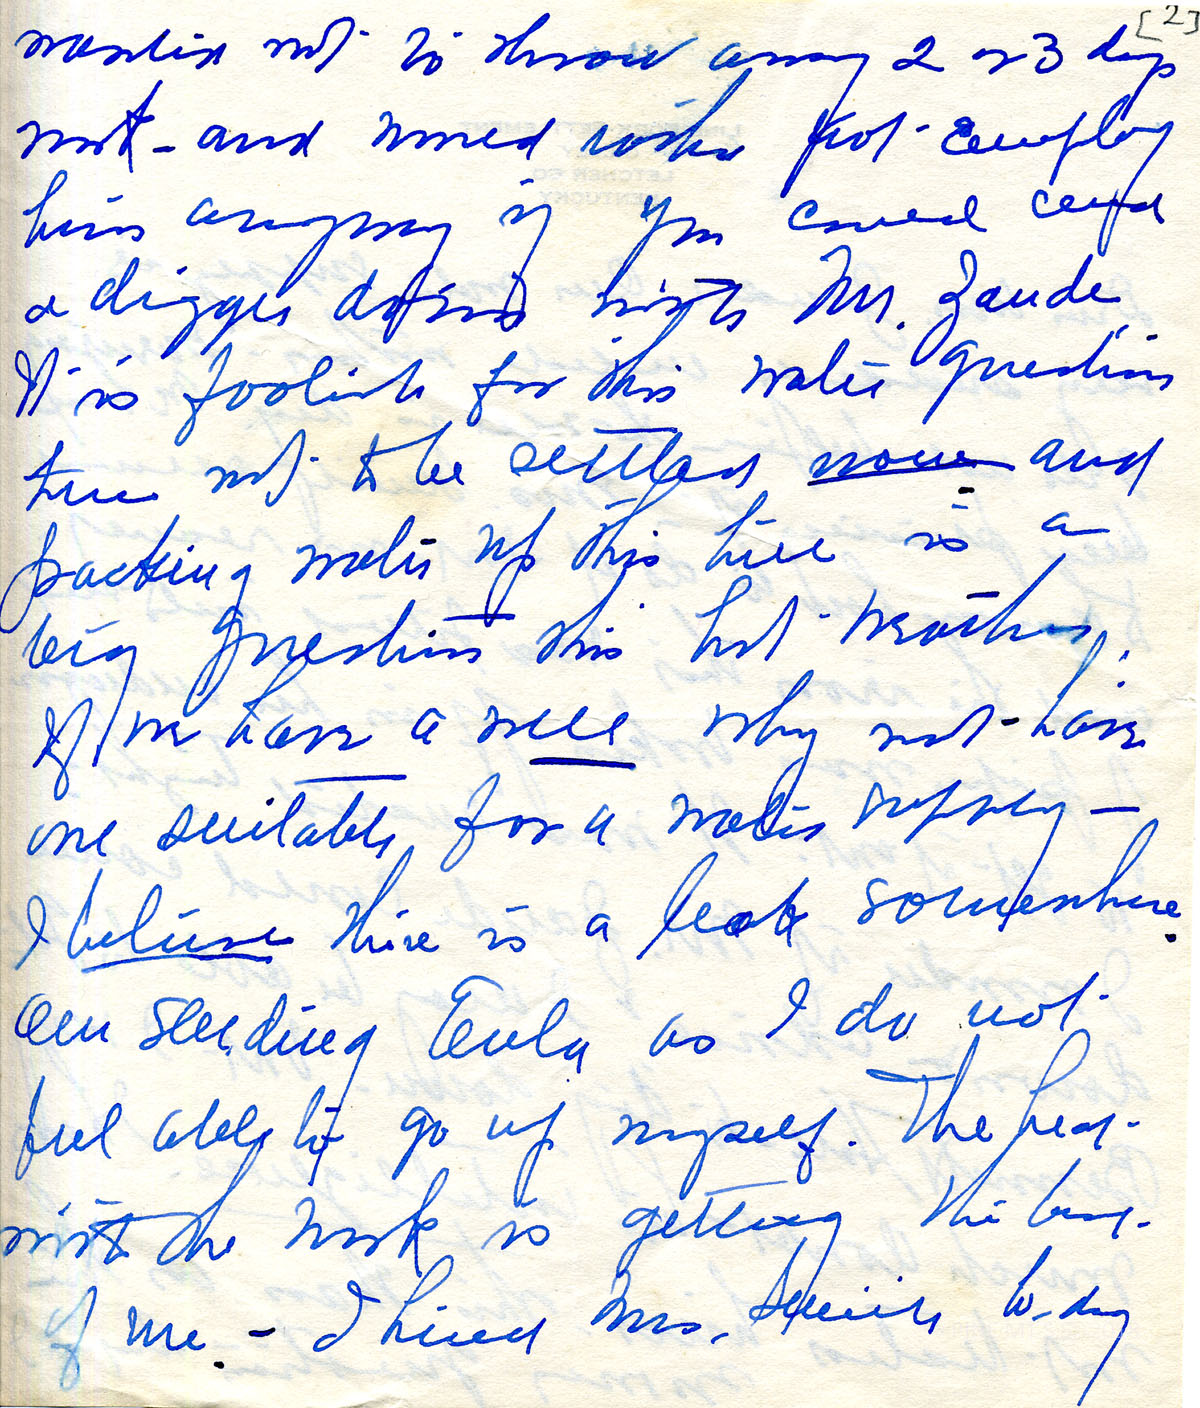 [2]
wanted not to throw away 2 or 3 days
work - and would rather not employ
him anyway if you could
a digger down with Mr. Zande.
It is foolish for this water question
here not to be settled now and
packing water up this hill is a
big question this hot weather.
If we have a well why not have
one suitable for a water supply -
I believe there is a leak somewhere.
Am sending Eula as I do not
feel able to go up myself. The heat
with the work is getting the best
of me. - I hired Mrs. to-day